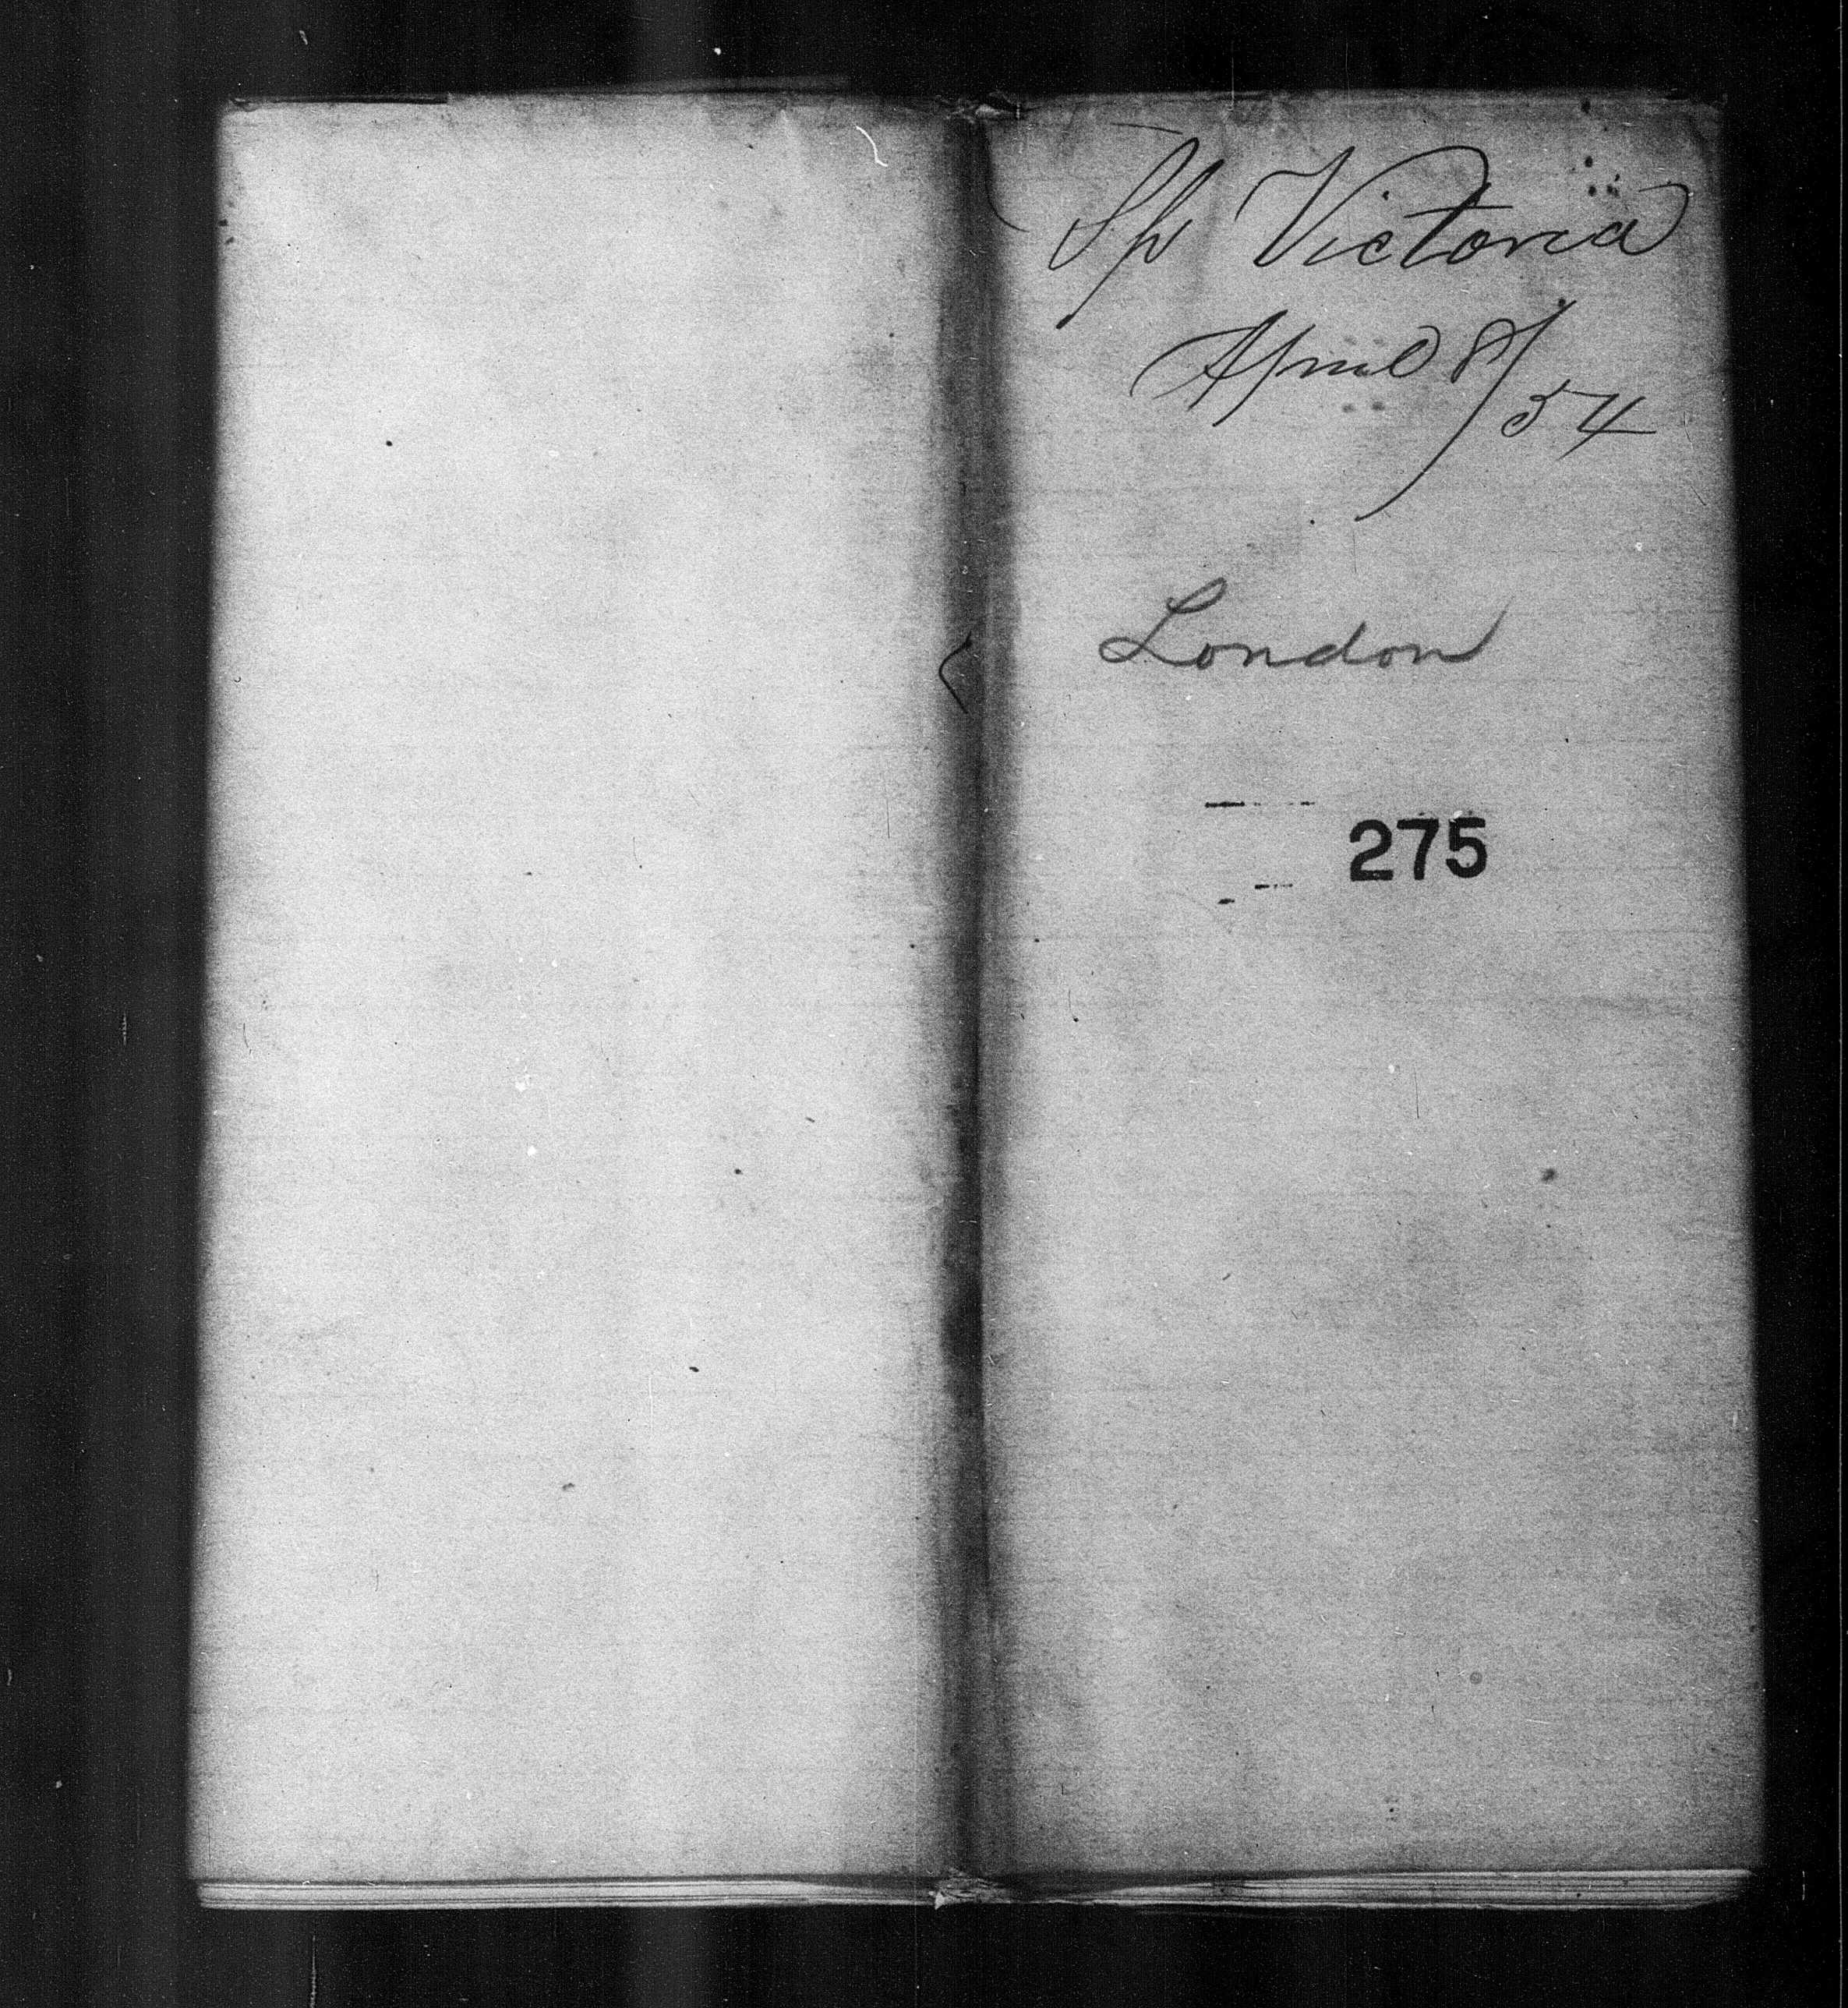 Sp Victoria
April 8/54
London
275